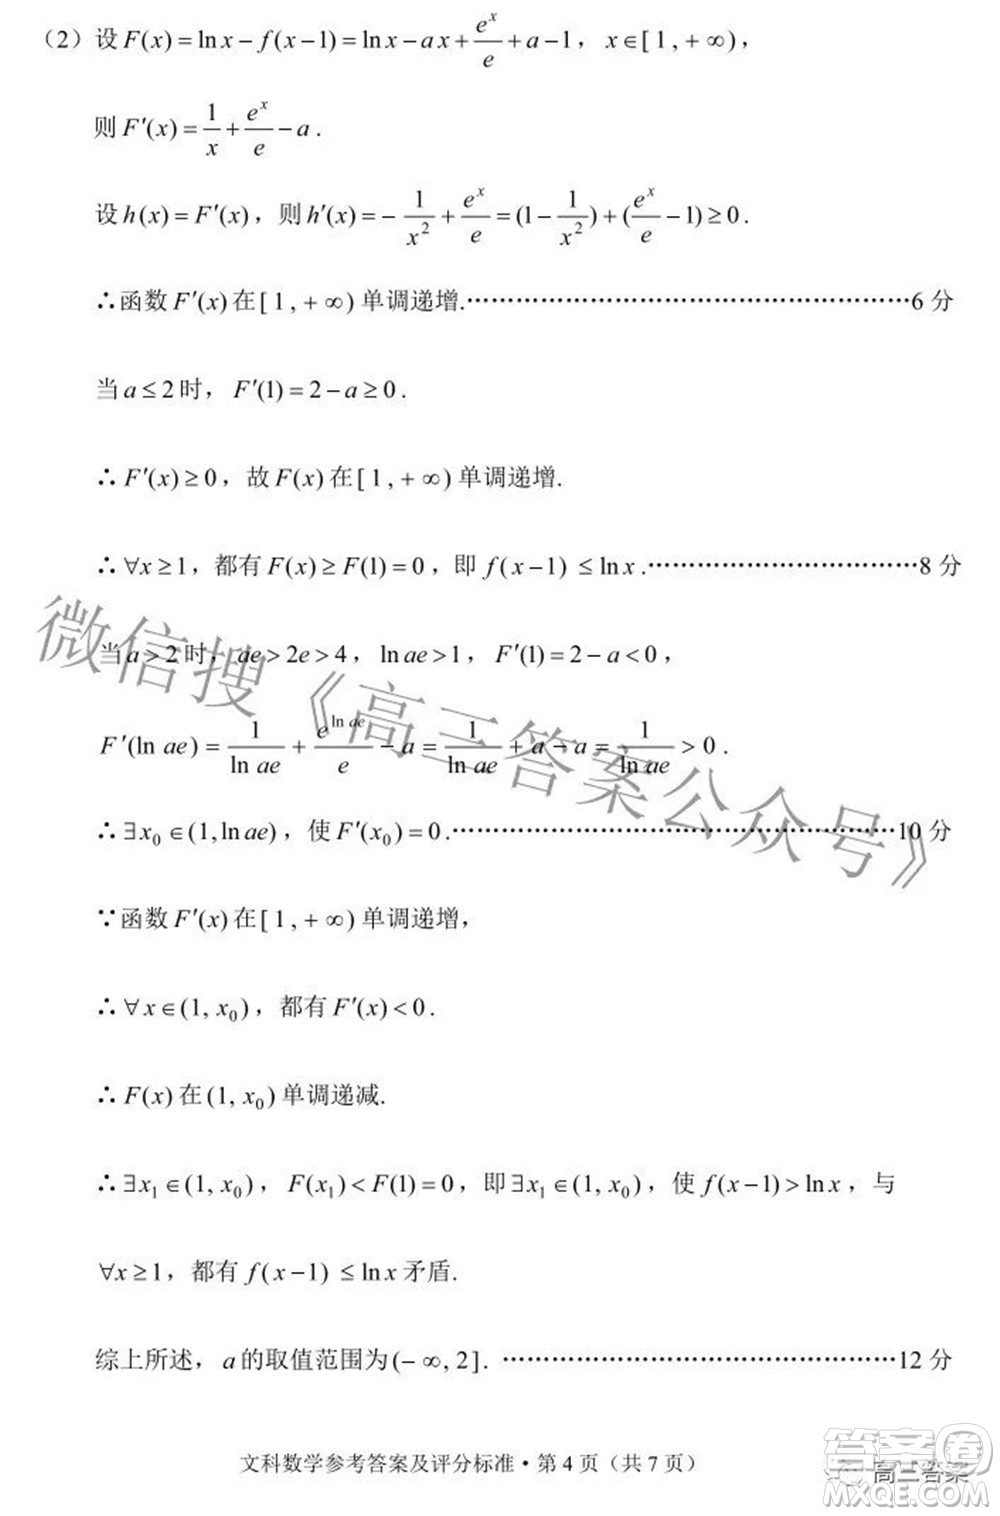 （2）设 F(x) = ln x − f(x−1) = ln x − ax + e^x/e + a − 1，x∈[1, +∞)，
则 F′(x) = 1/x + e^x/e − a .
设 h(x) = F′(x)，则 h′(x) = − 1/x² + e^x/e = (1 − 1/x²) + (e^x/e − 1) ≥ 0 .
∴函数 F′(x) 在 [1, +∞) 单调递增.……………………………………………6 分
当 a ≤ 2 时，F′(1) = 2 − a ≥ 0 .
∴ F′(x) ≥ 0，故 F(x) 在 [1, +∞) 单调递增.
∴ ∀x ≥ 1，都有 F(x) ≥ F(1) = 0，即 f(x−1) ≤ ln x .……………………………8 分
当 a > 2 时，ae > 2e > 4，ln ae > 1，F′(1) = 2 − a < 0，
F′(ln ae) = 1/ln ae + e^(ln ae)/e − a = 1/ln ae + a − a = 1/ln ae > 0 .
∴ ∃x₀ ∈ (1, ln ae)，使 F′(x₀) = 0 .……………………………………………10 分
∵函数 F′(x) 在 [1, +∞) 单调递增，
∴ ∀x ∈ (1, x₀)，都有 F′(x) < 0 .
∴ F(x) 在 (1, x₀) 单调递减.
∴ ∃x₁ ∈ (1, x₀)，F(x₁) < F(1) = 0，即 ∃x₁ ∈ (1, x₀)，使 f(x−1) > ln x，与
∀x ≥ 1，都有 f(x−1) ≤ ln x 矛盾.
综上所述，a 的取值范围为 (−∞, 2] . ……………………………………………12 分
微信搜《高三答案公众号》
文科数学参考答案及评分标准・第 4 页（共 7 页）
答案圈
高三答案
MXQE.COM